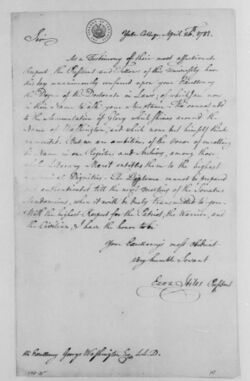 Sir
Yale College April 26th 1781.
As a Testimony of their most affectionate
Respect, the President and Fellows of this University have
this day unanimously conferred upon your Excellency
the Degree of the Doctorate in Laws; of which I am now
in their Name to ask your Acceptance. We cannot add
to the Accumulation of Glory which shines around the
Name of Washington, and which none but himself thinks
un merited. But we are ambitious of the Honor of enrolling
Name in our Register and Archives, among those
Literary Merit entitles them to the highest
of Dignities. The Diploma cannot be prepared
and authenticated till the next meeting of the Senatus
Academicus, when it will be duly transmitted to you.
With the highest Respect for the Patriot, the Warrior, and
the Civilian, I have the honor to be
Your Excellency's most Obedient
very humble Servant
Ezra Stiles Presidt
His Excellency George Washington Esq. LL.D.